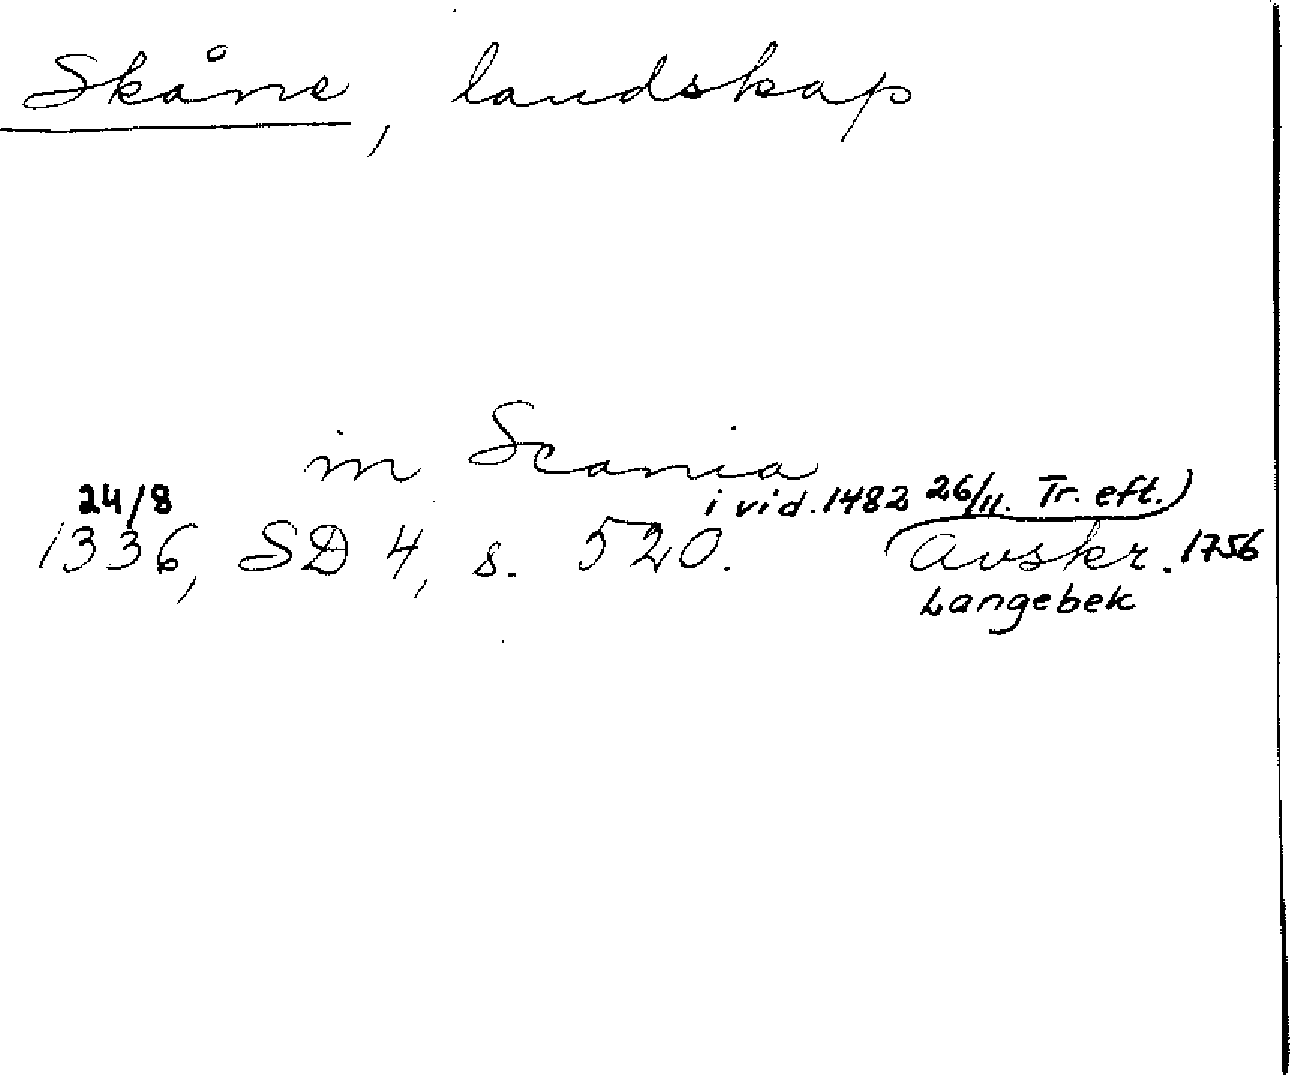 Skåne, landskap
in Scania
24/8 i vid. 1482 26/11. Tr. eft.)
1336, SD 4, s. 520. Avskr. 1756
Langebek